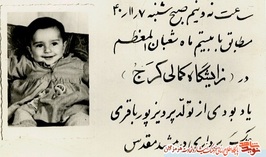 ساعت نه و نیم صبح شنبه ۴۰/۱۱/۷
مطابق با بیستم ماه شعبان المعظم
در ( زایشگاه کمالی کرج )
یادبودی از تولد پرویز پورباقری
عکس برداری در مشهد مقدس